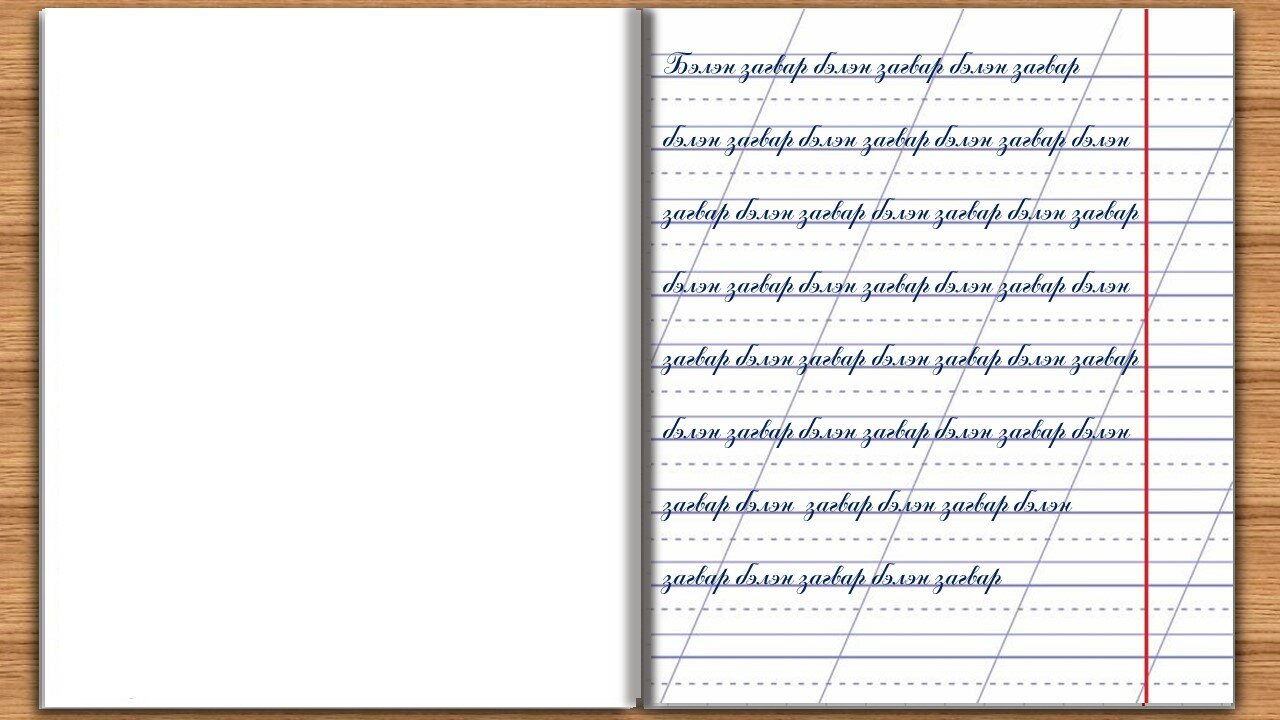 Бэлэн загвар бэлэн загвар бэлэн загвар
бэлэн загвар бэлэн загвар бэлэн загвар бэлэн
загвар бэлэн загвар бэлэн загвар бэлэн загвар
бэлэн загвар бэлэн загвар бэлэн загвар бэлэн
загвар бэлэн загвар бэлэн загвар бэлэн загвар
бэлэн загвар бэлэн загвар бэлэн загвар бэлэн
загвар бэлэн загвар бэлэн загвар бэлэн
загвар бэлэн загвар бэлэн загвар